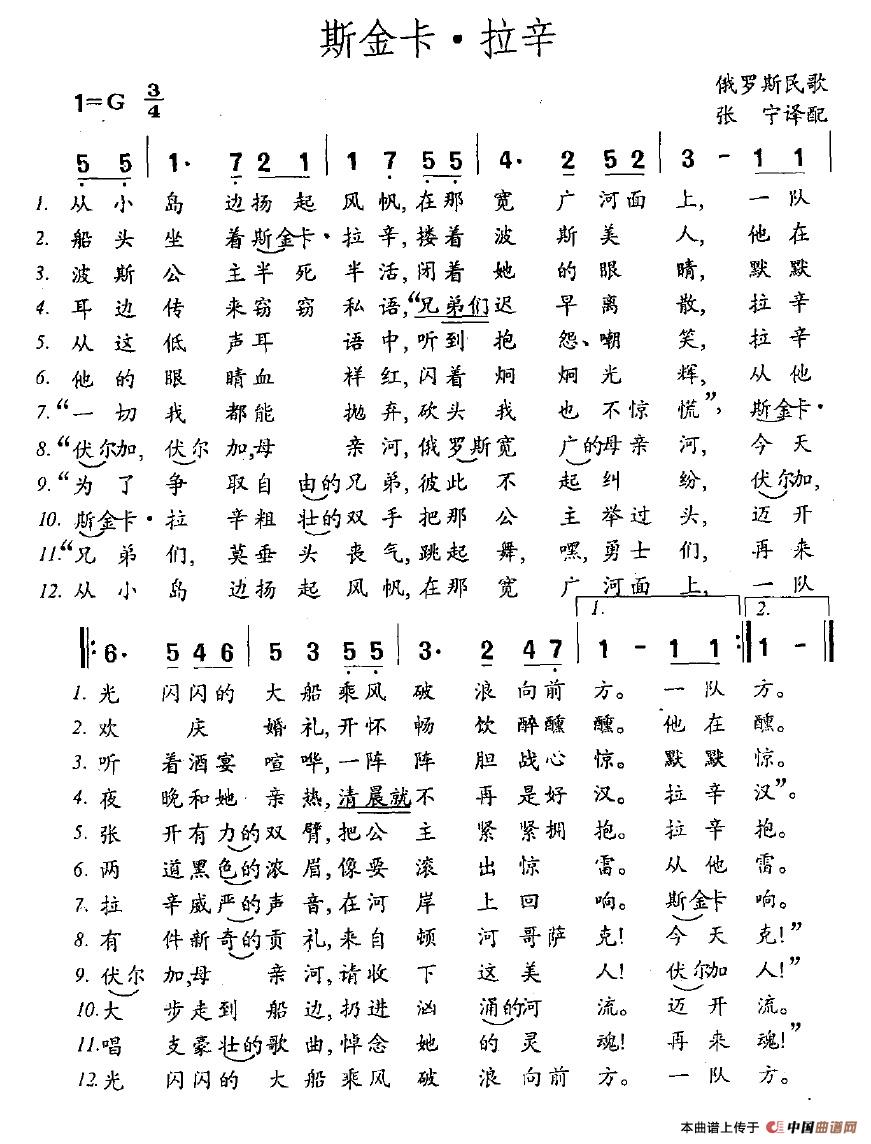 斯金卡·拉辛
1=G 3/4
俄罗斯民歌
张 宁译配
5 5 | 1· 7 2 1 | 1 7 5 5 | 4· 2 5 2 | 3 - 1 1 |
1. 从小岛边扬起风帆,在那宽广河面上, 一队
2. 船头坐着斯金卡·拉辛,搂着波斯美人, 他在
3. 波斯公主半死半活,闭着她的眼睛, 默默
4. 耳边传来窃窃私语,“兄弟们迟早离散, 拉辛
5. 从这低声耳语中,听到抱怨、嘲笑, 拉辛
6. 他的眼睛血样红,闪着炯炯光辉, 从他
7. “一切我都能抛弃,砍头我也不惊慌”, 斯金卡·
8. “伏尔加,伏尔加,母亲河,俄罗斯宽广的母亲河, 今天
9. “为了争取自由的兄弟,彼此不起纠纷, 伏尔加,
10. 斯金卡·拉辛粗壮的双手把那公主举过头, 迈开
11. “兄弟们,莫垂头丧气,跳起舞,嘿,勇士们, 再来
12. 从小岛边扬起风帆,在那宽广河面上, 一队
1. 2.
6· 5 4 6 | 5 3 5 5 | 3· 2 4 7 | 1 - 1 1 :| 1 - ‖
1. 光闪闪的大船乘风破浪向前方。 一队方。
2. 欢庆婚礼,开怀畅饮醉醺醺。 他在醺。
3. 听着酒宴喧哗,一阵阵胆战心惊。 默默惊。
4. 夜晚和她亲热,清晨就不再是好汉。 拉辛汉”。
5. 张开有力的双臂,把公主紧紧拥抱。 拉辛抱。
6. 两道黑色的浓眉,像要滚出惊雷。 从他雷。
7. 拉辛威严的声音,在河岸上回响。 斯金卡响。
8. 有件新奇的贡礼,来自顿河哥萨克! 今天克!”
9. 伏尔加,母亲河,请收下这美人! 伏尔加人!”
10. 大步走到船边,扔进汹涌的河流。 迈开流。
11. 唱支豪壮的歌曲,悼念她的灵魂! 再来魂!”
12. 光闪闪的大船乘风破浪向前方。 一队方。
本曲谱上传于 中国曲谱网